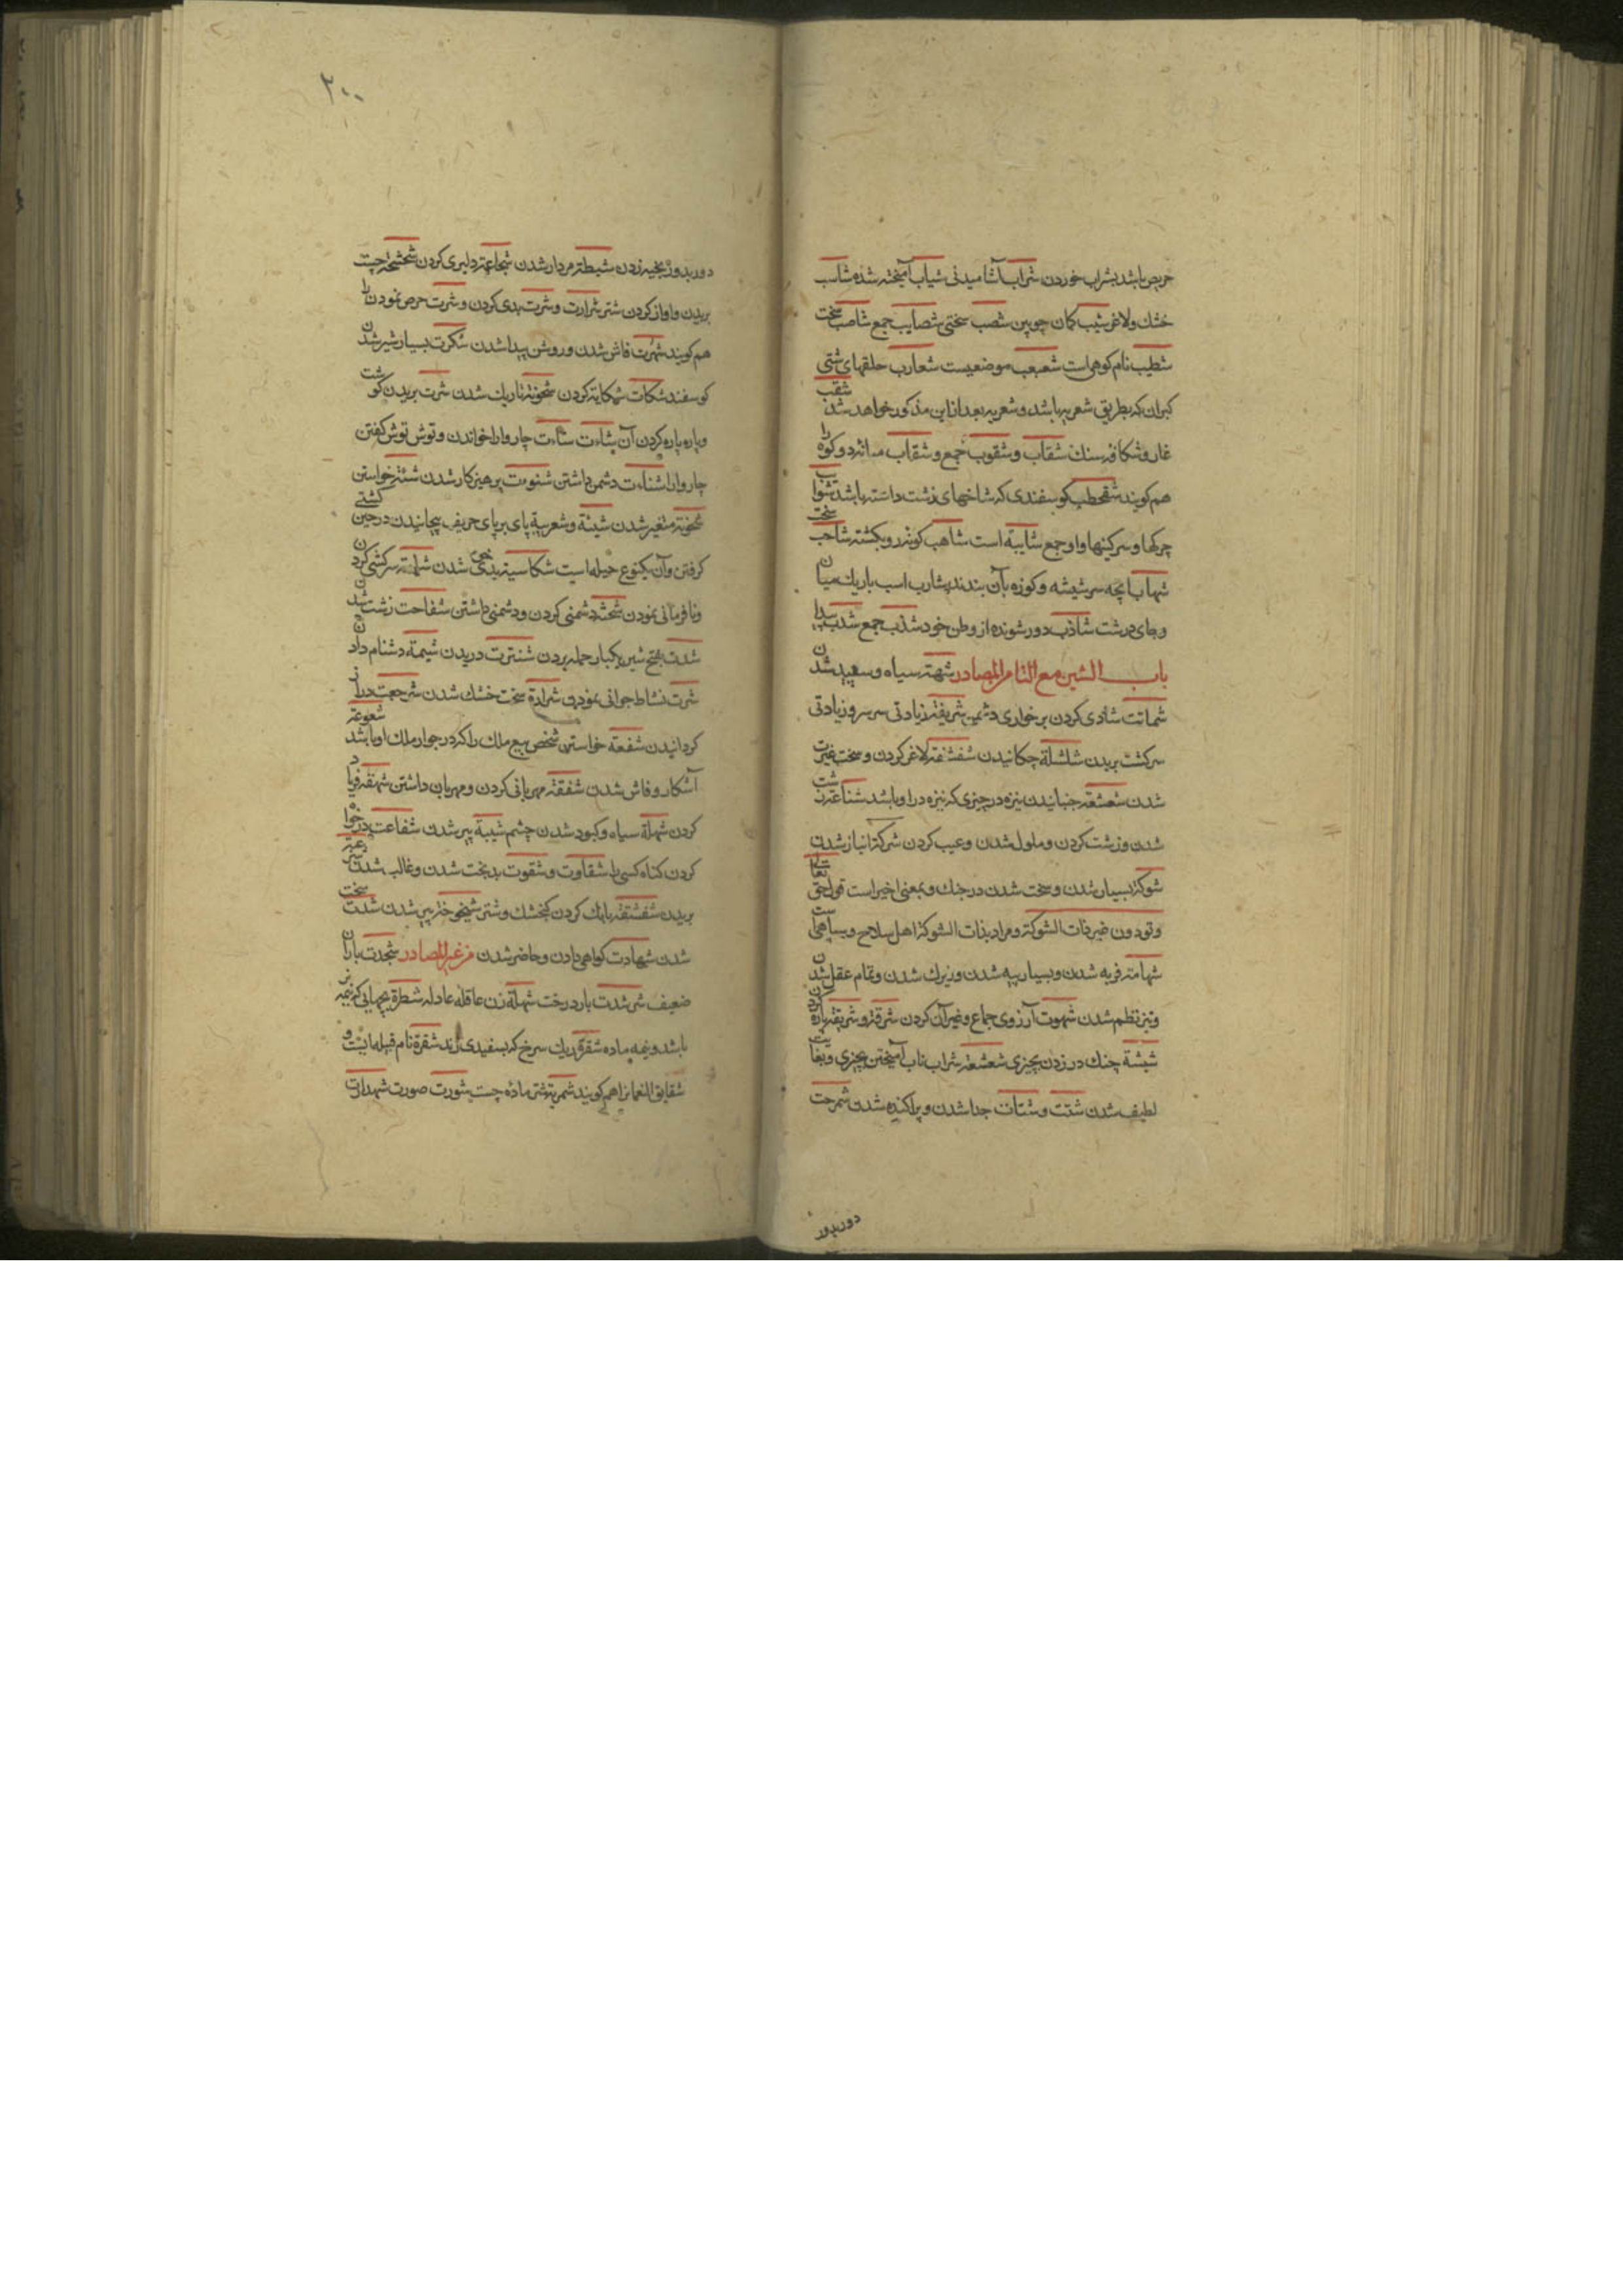 حریص باشد بشراب خوردن شراب آشامیدنی شیاب آمیخته شده شاسب
خشك ولاغر شیب کمان چوبین شصب سختی شصایب جمع شاصب سخت
شطیب نام کوهی است شعبعب موضعیست شعارب حلقهای شتی
کبران که بطریق شعریه باشد و شعریه بعد ازین مذکور خواهد شد شقب
غار و شکاف سنك شقاب و شقوب جمع و شقاب مانرد و کوه را
هم کویند شقحطب کوسفندی که شاخهای زشت داشته باشد شوایب
چرکها و سرکینها و او جمع شایبة است شاهب کونه رو بکشته شاحب سخت
شهاب انچه سر شیشه و کوزه بآن بندند شارب اسب باریك میان
وجای درشت شاذب دور شونده از وطن خود شذب جمع شدب پیدا
باب الشین مع التا من المصادر شهته سیاه و سفید شدن
شماتت شادی کردن بر خواری دشمن شریفة زیادتی سر سرو زیادتی
سر کشت بریدن شلشلة چکانیدن شفشفة لاغر کردن و سخت غیرت
شدن شعشعة جنبانیدن نیزه در چیزی که نیزه در او باشد شناعة زشت
شدن و زشت کردن و ملول شدن و عیب کردن شرکة انباز شدن
شوکة بسیار شدن و سخت شدن در جنك و بمعنی اخیر است قول حق تعالی
وتودون غیر ذات الشوکة و مراد بذات الشوکة اهل سلاح و سپاهی است
شهامة فربه شدن و بسیار پیه شدن و زیرك شدن و تمام عقل شدن
وتیز نظم شدن شهوت آرزوی جماع و غیر آن کردن شرقة و شریقة پاره کردن
شبثة چنك در زدن بچیزی شعشعة شراب ناب آمیختن بچیزی و بغایت
لطیف شدن شتت و شتات جدا شدن و پراکنده شدن شمرجت
دوربدور
۲۰۰
دوربدور بخیه زدن شیطة مردار شدن شجاعة دلیری کردن شحشحة چست
بریدن و اواز کردن شتر شرارت و شرت بدی کردن و شرت حرص نمودن را
هم کویند شهرت فاش شدن و روشن پیدا شدن شکرت بسیار شیر شدن
کوسفند شکات شکایة کردن شحونة تاریك شدن شرت بریدن کوشت
و پاره پاره کردن آن شاءت شأءت چاروا را خواندن و توش توش کفتن
چاروا را شناءت دشمن داشتن شنوءت پرهیز کار شدن شئنز خواستن
شحونة متغیر شدن شیئة و شعربیة پای بر پای حریف پیچانیدن در حین کشتی
کرفتن و آن یکنوع حیله است شکاسیة بدخوی شدن شماتة سرکشی کردن
و نافرمانی نمودن شحث دشمنی کردن و دشمنی داشتن شفاحت زشت شدن
شدت بفتح شین یکبار حمله بردن شنترت دریدن شیمة دشنام دادن
شرت نشاط جوانی نمودن شرازة سخت خشك شدن شرجعت دراز
کردانیدن شفعة خواستن شخص بیع ملك را که در جوار ملك او باشد شعوعة
آشکار و فاش شدن شفقة مهربانی کردن و مهربان داشتن شهقة فریاد
کردن شهلة سیاه و کبود شدن چشم شیبة پیر شدن شفاعت درخواه
کردن کناه کسی را شقاوت و شقوت بدبخت شدن و غالب شدن
بریدن شقشقة بانك کردن کنجشك و شتر شیخوخة پیر شدن شدت سخت
شدن شهادت کواهی دادن و حاضر شدن من غیر المصادر شجدت باران
ضعیف شرشدت بار درخت شهلة زن عاقله عادله شطرة بچهایی که نیمه نر
باشد و نیمه ماده شقرة ریك سرخ که بسفیدی زند شقرة نام قبیله ایست و
شقایق النعمانرا هم کویند شمریة شتر ماده چست شورت صورت شهدات